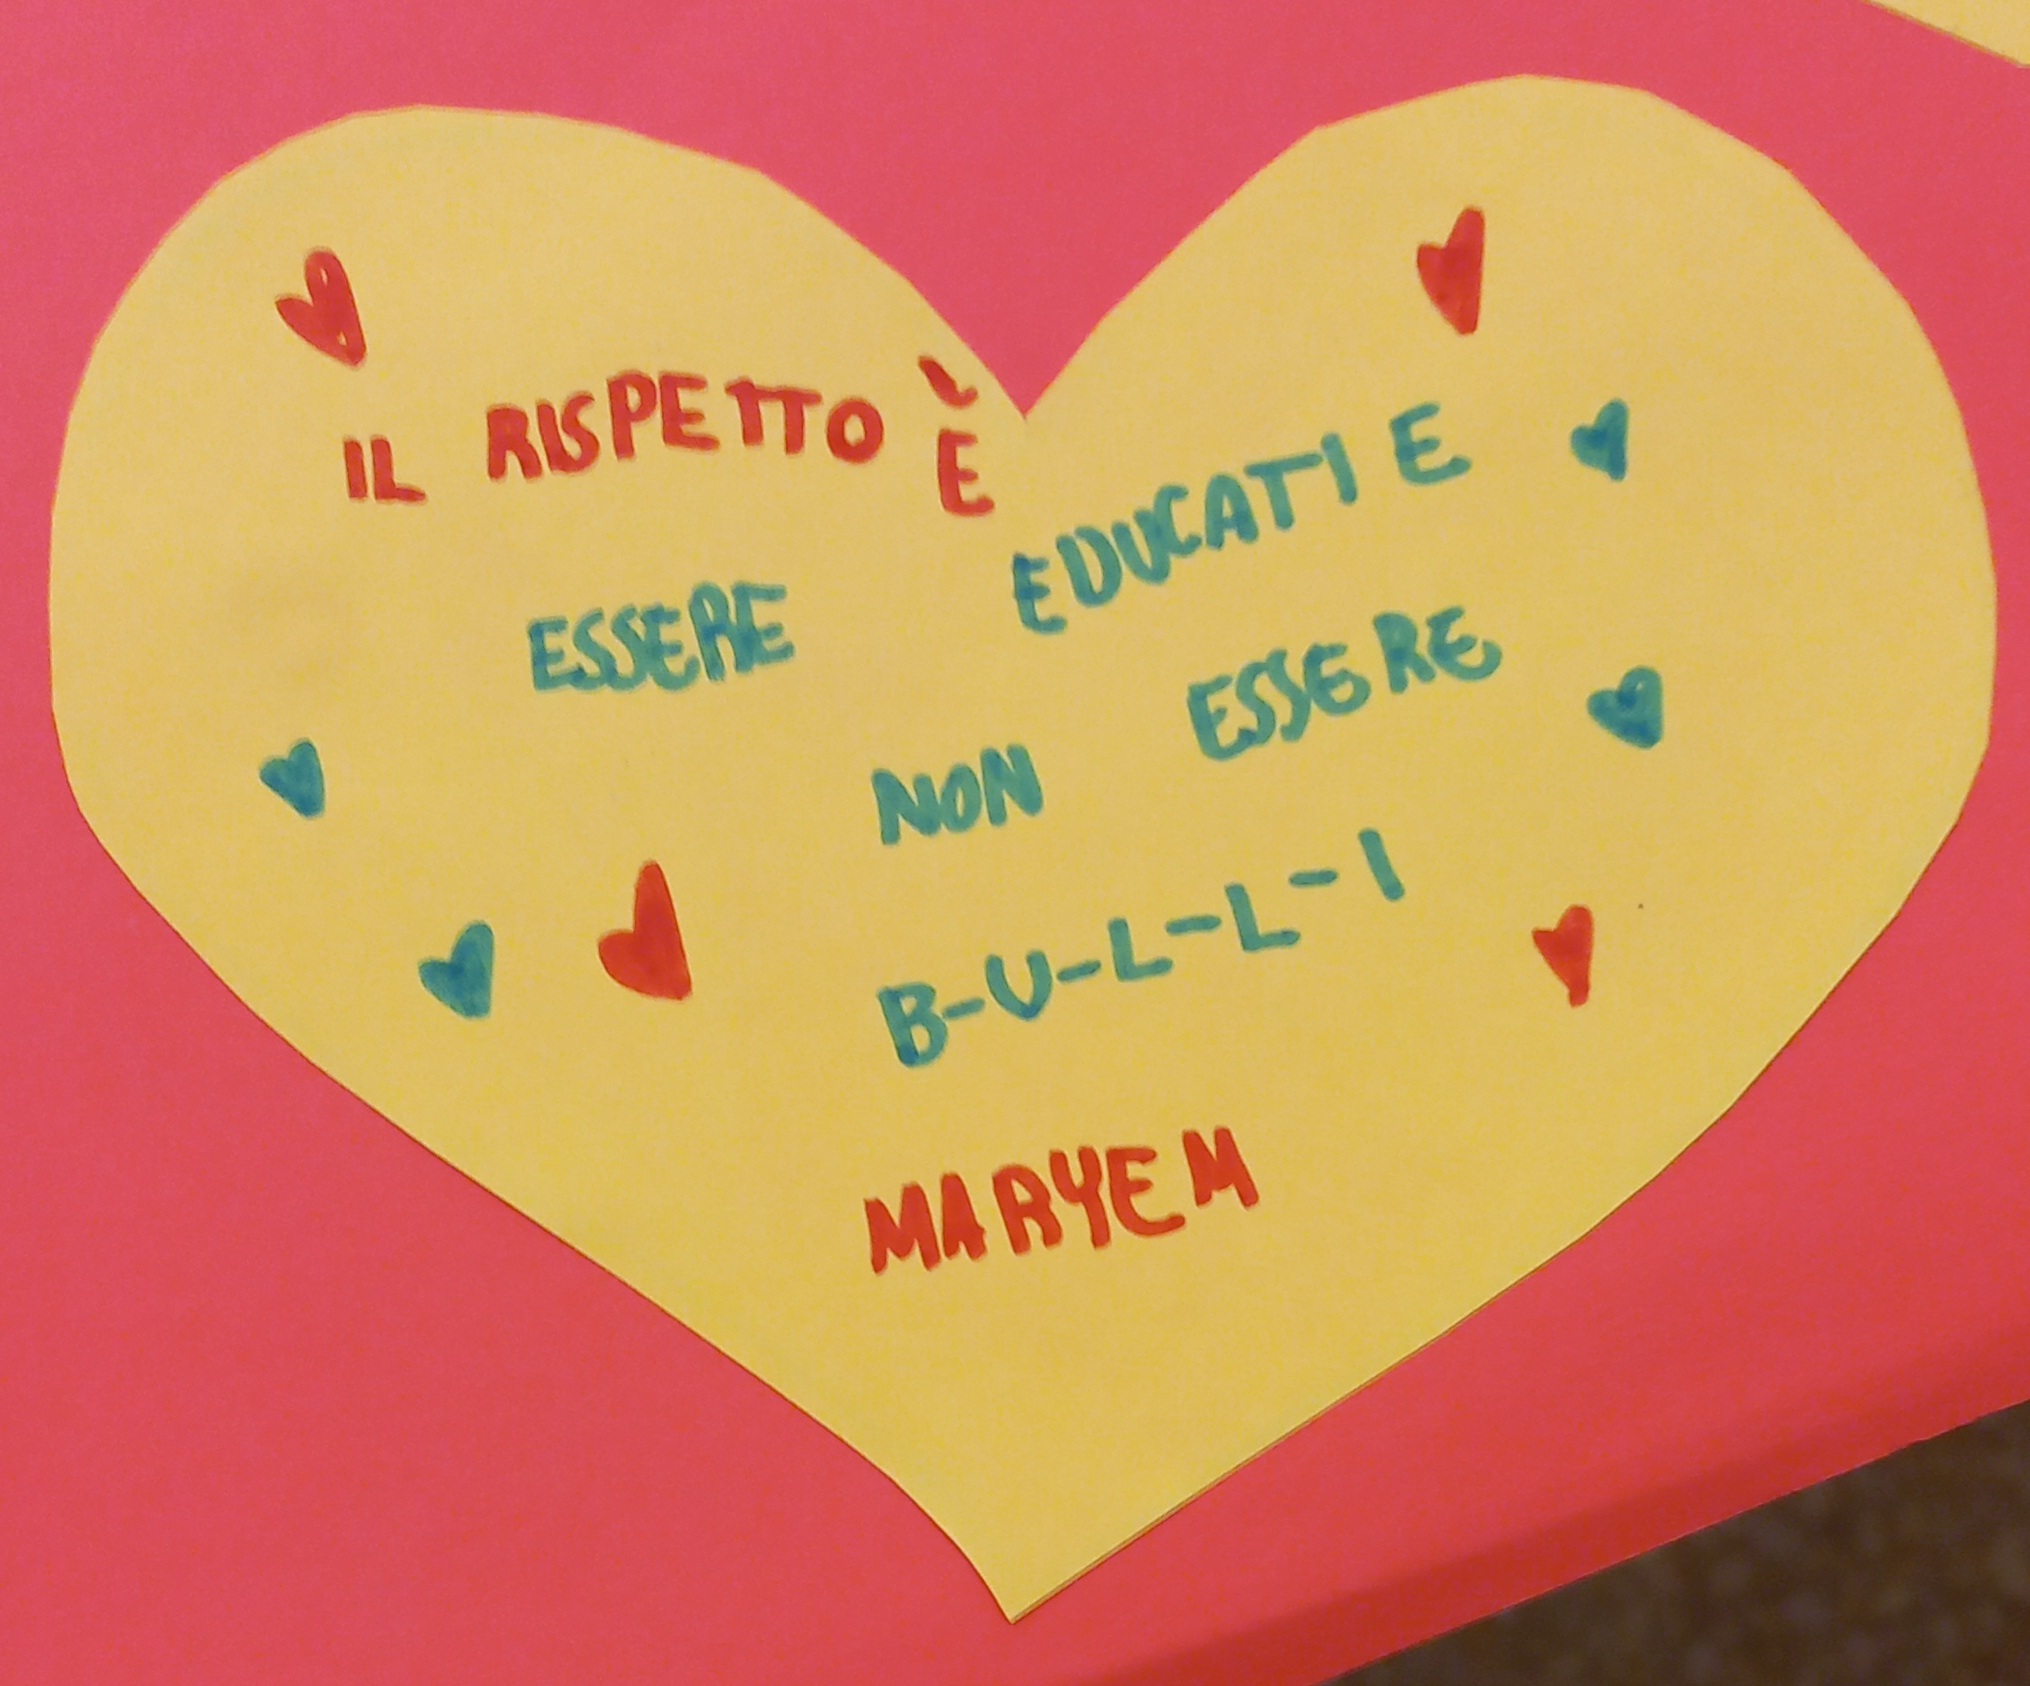 IL RISPETTO È
ESSERE EDUCATI E
NON ESSERE
B-U-L-L-I
MARYEM